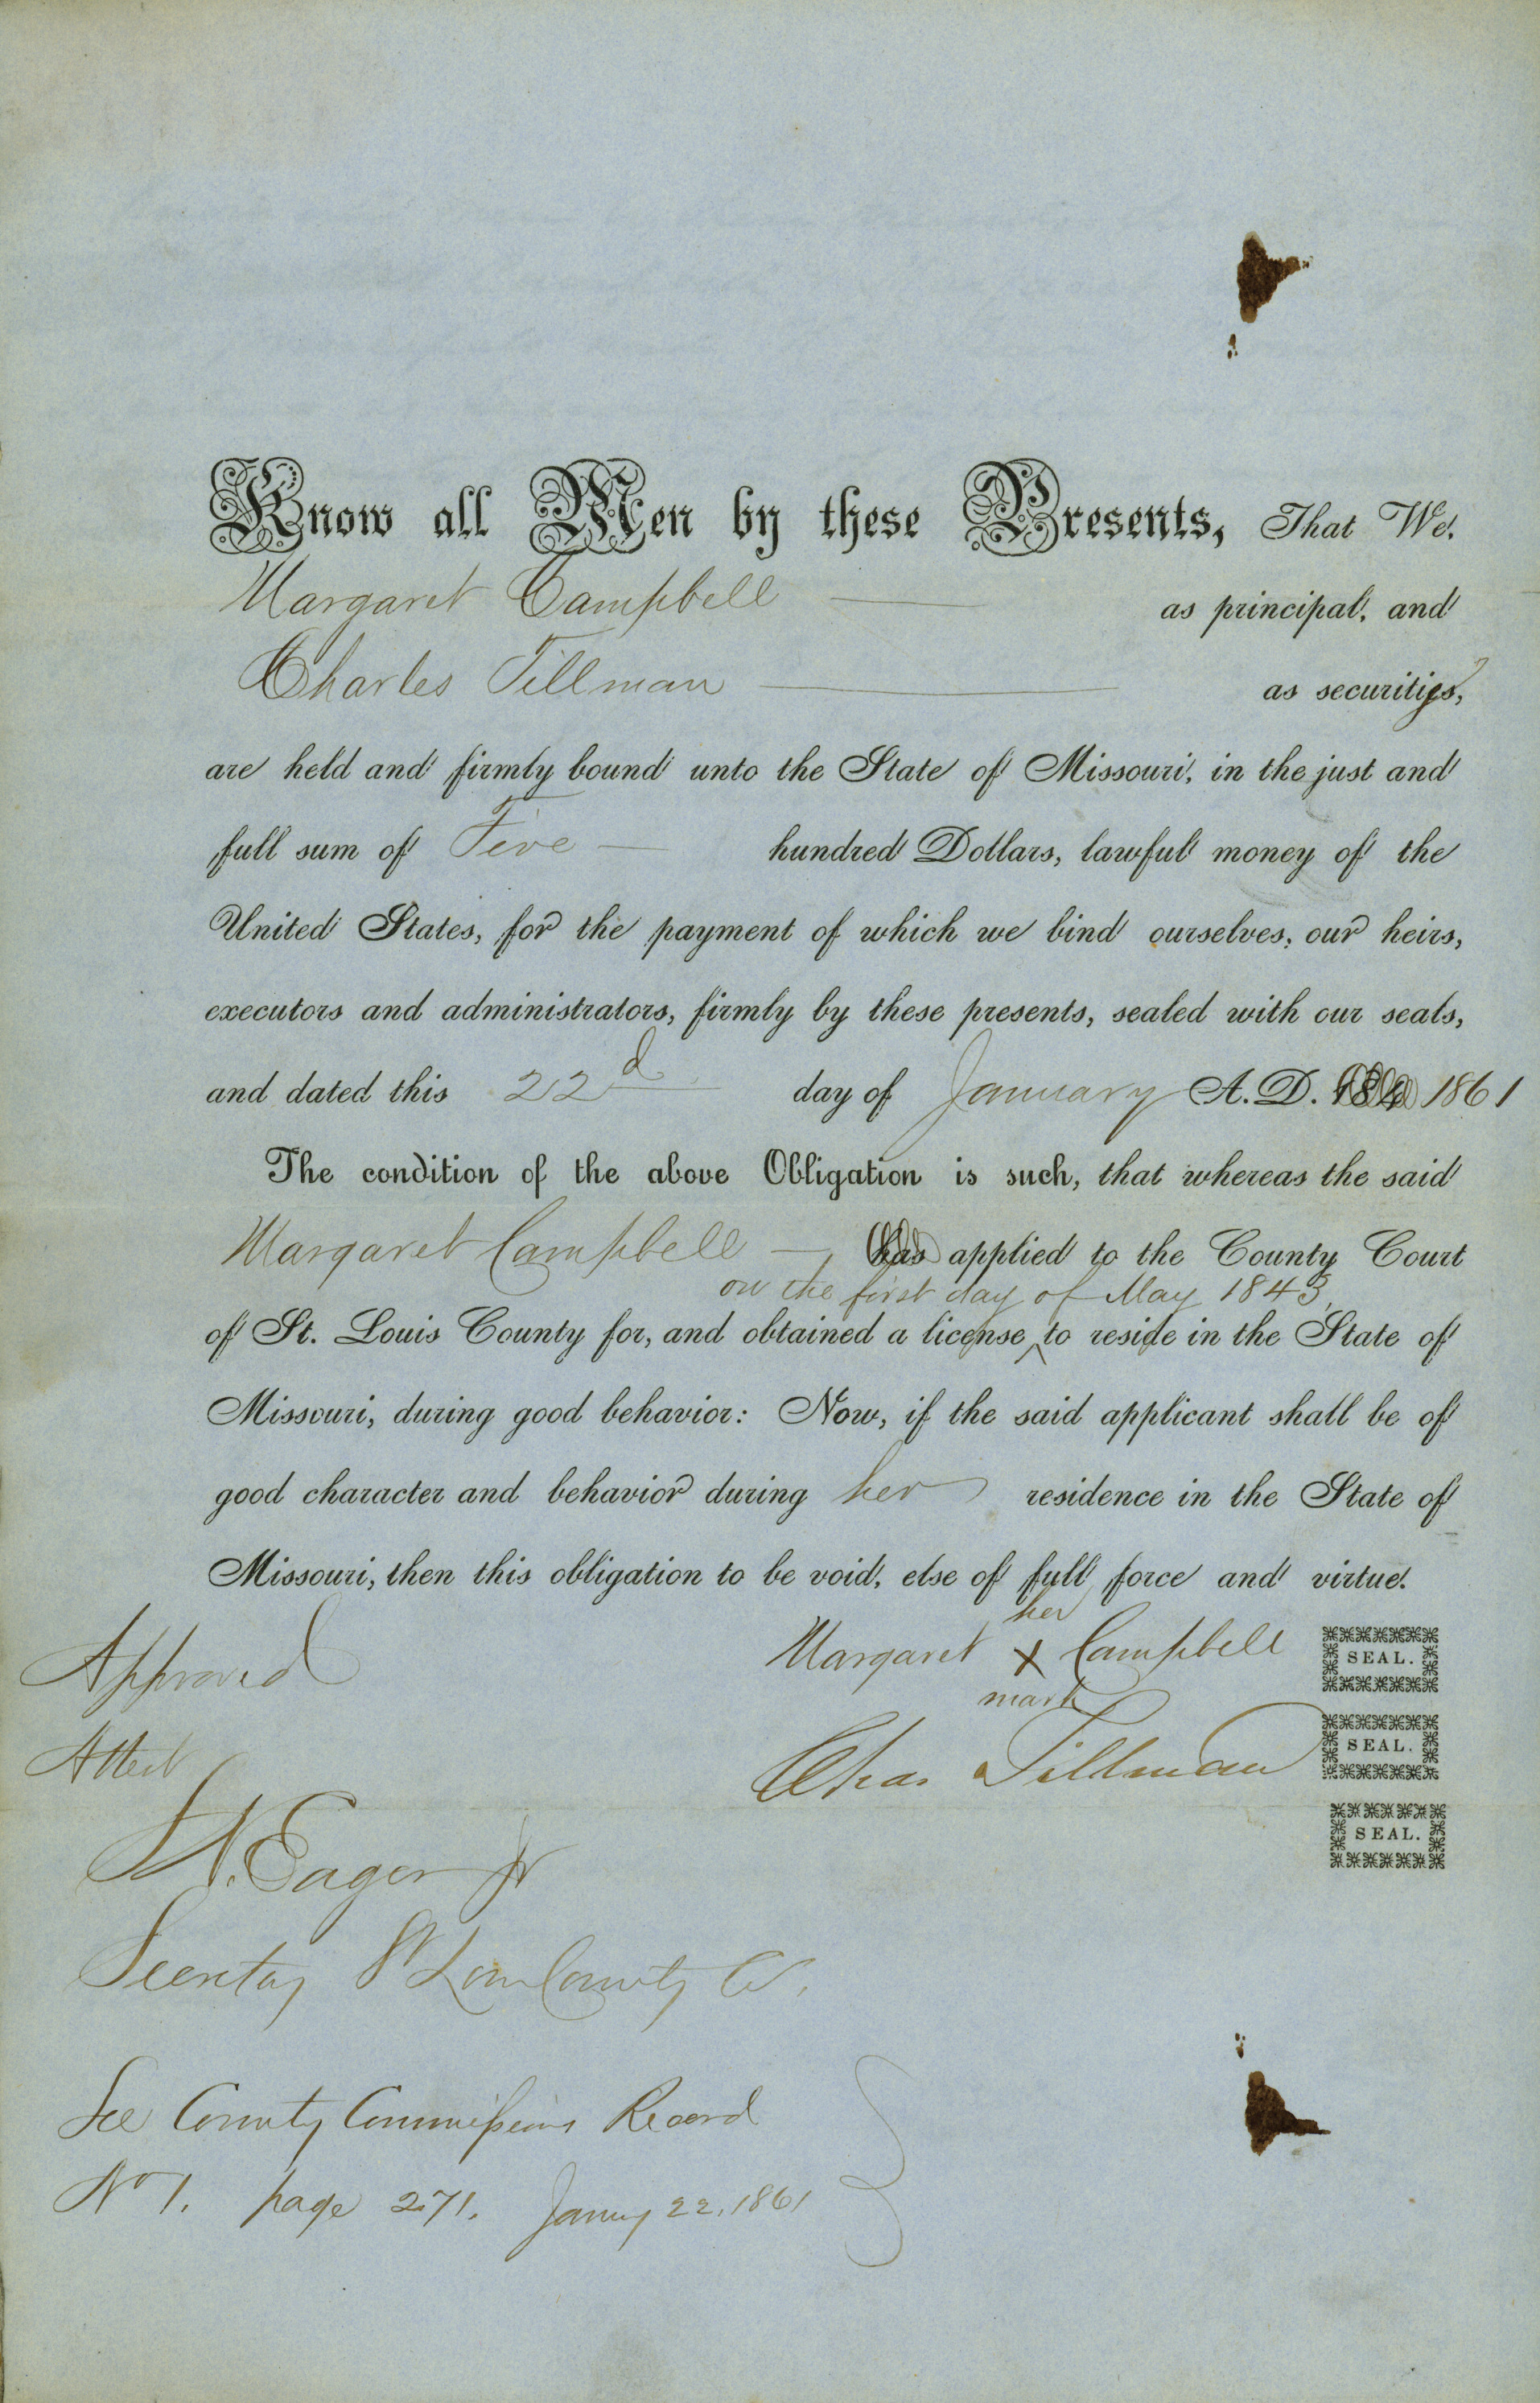 Know all Men by these Presents, That We,
Margaret Campbell as principal, and
Charles Tillman as security,
are held and firmly bound unto the State of Missouri, in the just and
full sum of Five hundred Dollars, lawful money of the
United States, for the payment of which we bind ourselves, our heirs,
executors and administrators, firmly by these presents, sealed with our seals,
and dated this 22d day of January A. D. 184 1861
The condition of the above Obligation is such, that whereas the said
Margaret Campbell has applied to the County Court
on the first day of May 1843
of St. Louis County for, and obtained a license to reside in the State of
Missouri, during good behavior: Now, if the said applicant shall be of
good character and behavior during her residence in the State of
Missouri, then this obligation to be void, else of full force and virtue.
her
Margaret X Campbell SEAL.
mark
Chas Tillman SEAL.
SEAL.
Approved
Attest
N. Eager Jr
Secretary St Louis County Ct.
See County Commissions Record
No 1. page 271. Jany 22. 1861